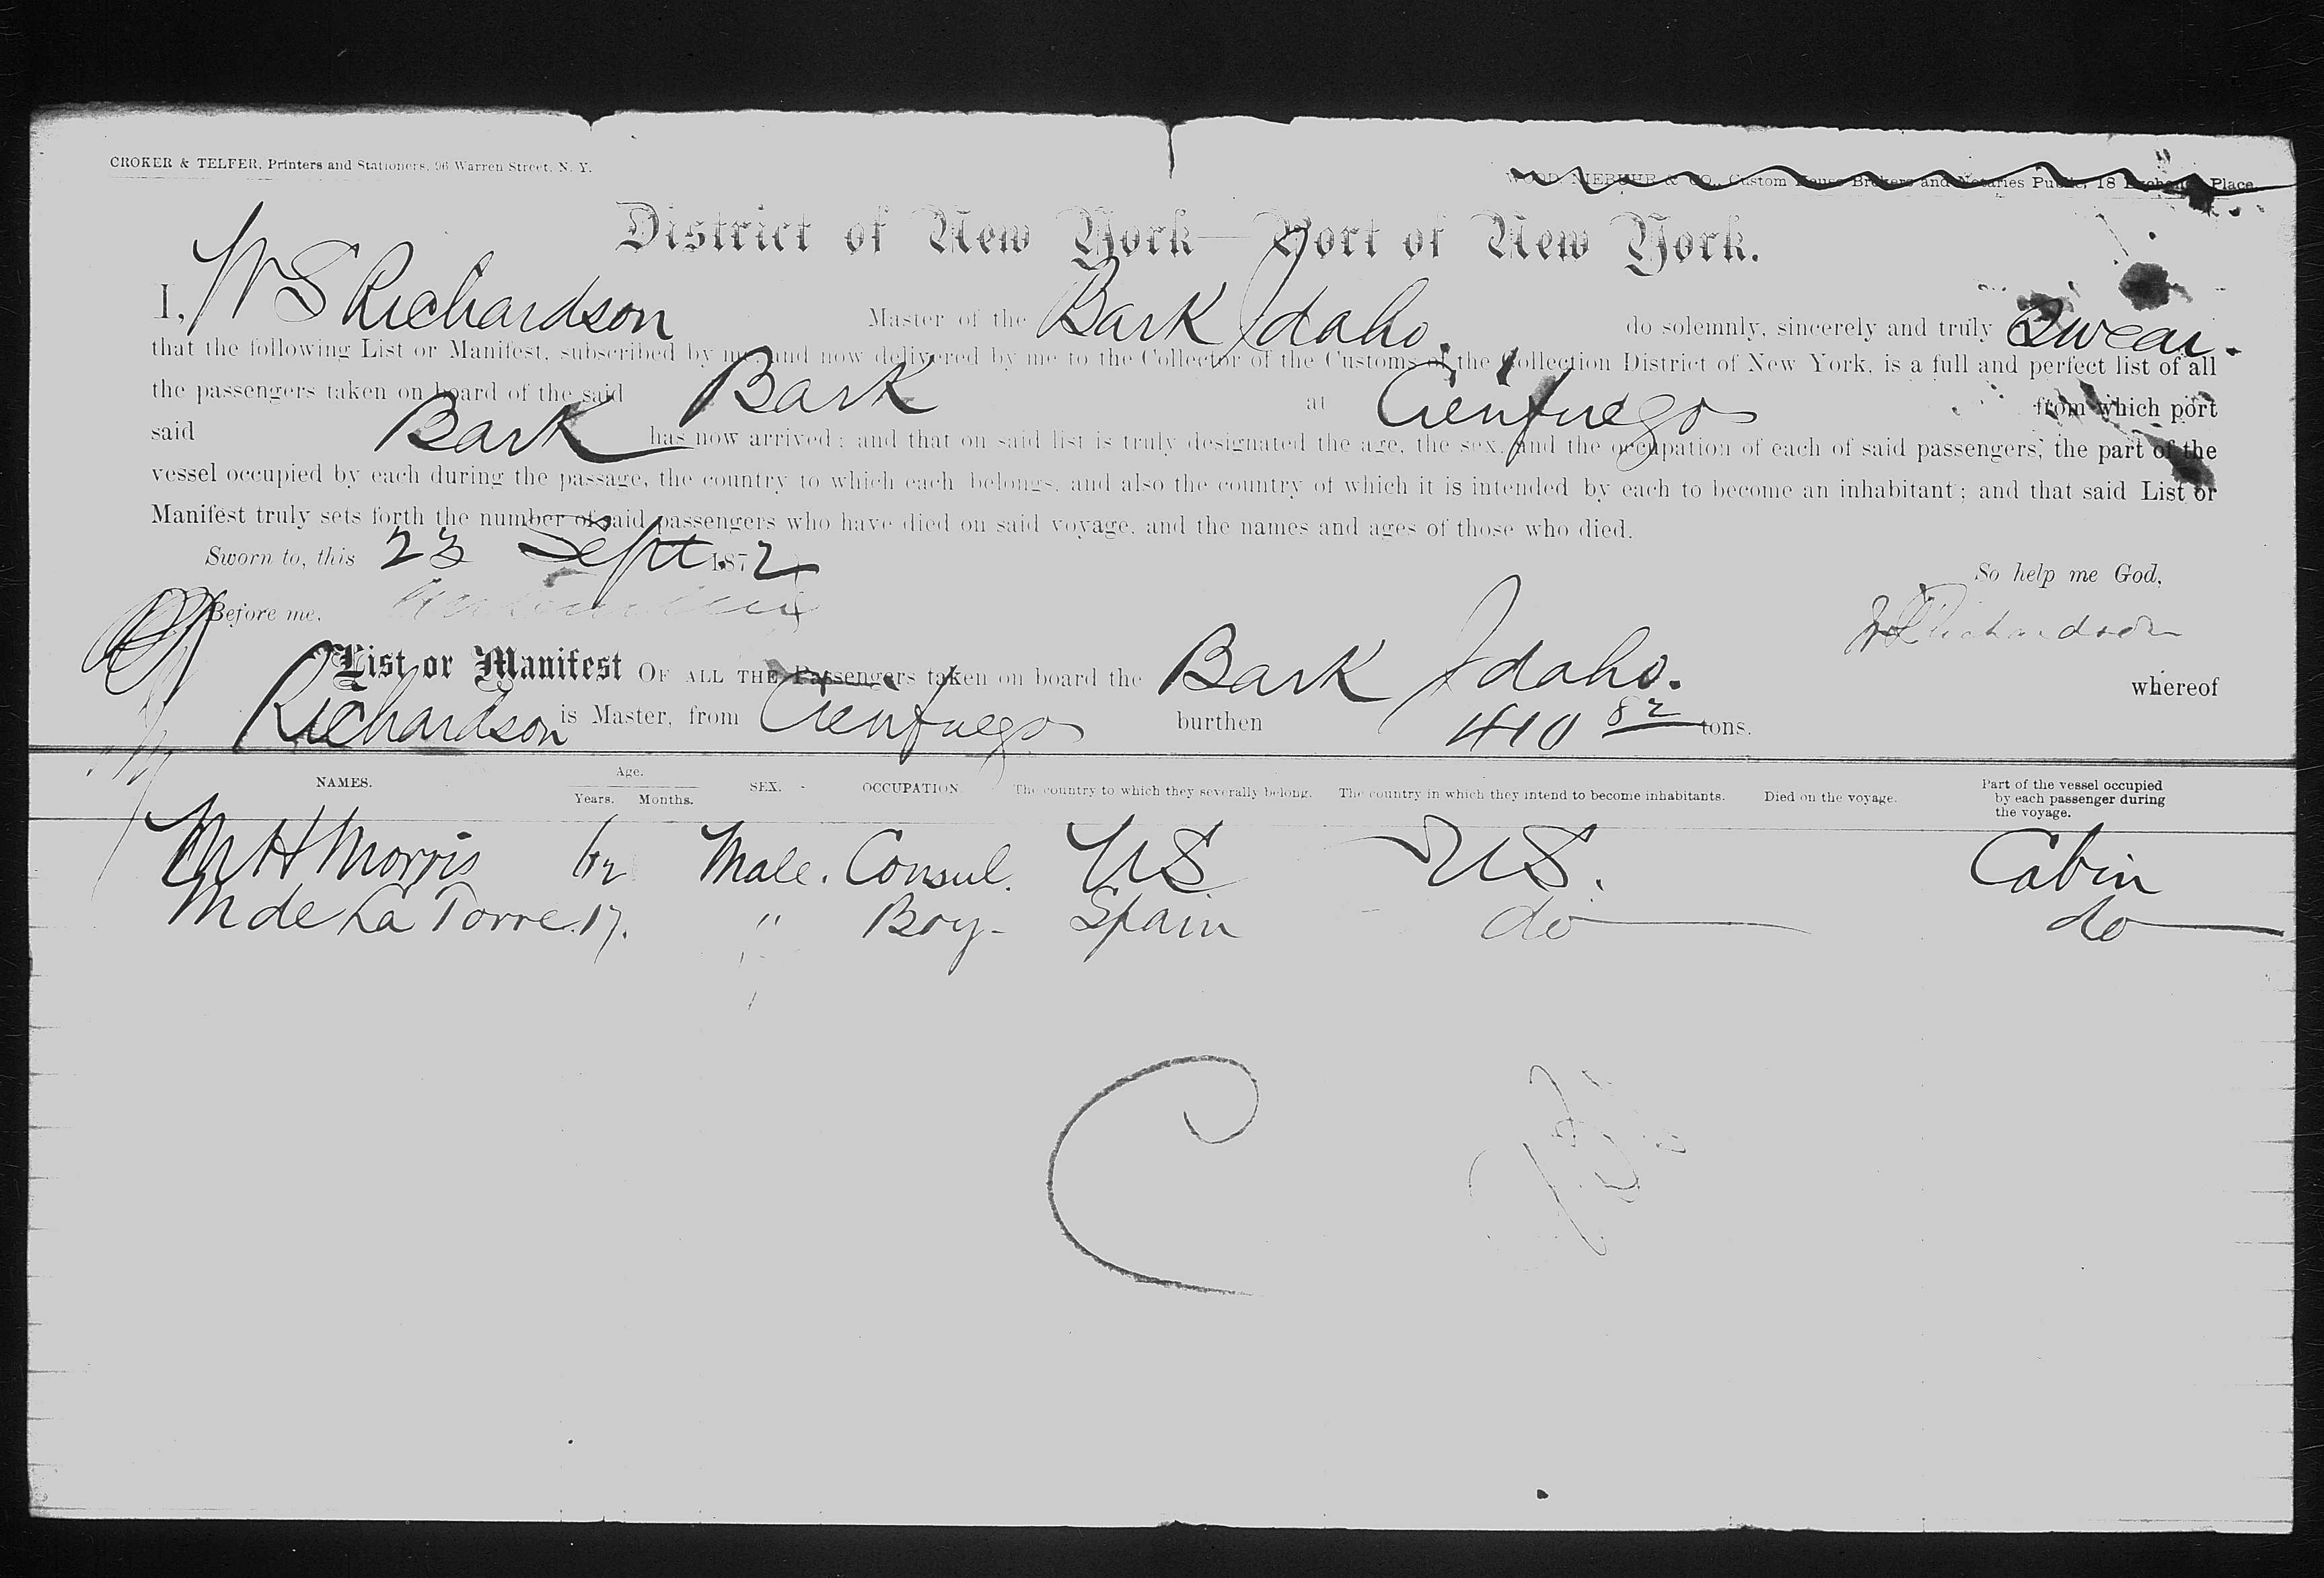 CROKER & TELFER, Printers and Stationers, 96 Warren Street, N. Y.
WOOD, NIEBUHR & CO., Custom House Brokers and Notaries Public, 18 Exchange Place.
District of New York—Port of New York.
I, W S Richardson Master of the Bark Idaho. do solemnly, sincerely and truly Swear.
that the following List or Manifest, subscribed by me, and now delivered by me to the Collector of the Customs of the Collection District of New York, is a full and perfect list of all
the passengers taken on board of the said Bark at Cienfuegos from which port
said Bark has now arrived; and that on said list is truly designated the age, the sex, and the occupation of each of said passengers, the part of the
vessel occupied by each during the passage, the country to which each belongs, and also the country of which it is intended by each to become an inhabitant; and that said List or
Manifest truly sets forth the number of said passengers who have died on said voyage, and the names and ages of those who died.
Sworn to, this 23 Sept. 1872 So help me God,
Before me, W S Richardson
List or Manifest OF ALL THE Passengers taken on board the Bark Idaho. whereof
Richardson is Master, from Cienfuegos burthen 410 82 tons.
NAMES. Age. Years. Months. SEX. OCCUPATION. The country to which they severally belong. The country in which they intend to become inhabitants. Died on the voyage. Part of the vessel occupied by each passenger during the voyage.
M H Morris Male. Consul. US US. Cabin
M de La Torre. 17. " Boy- Spain do do
C